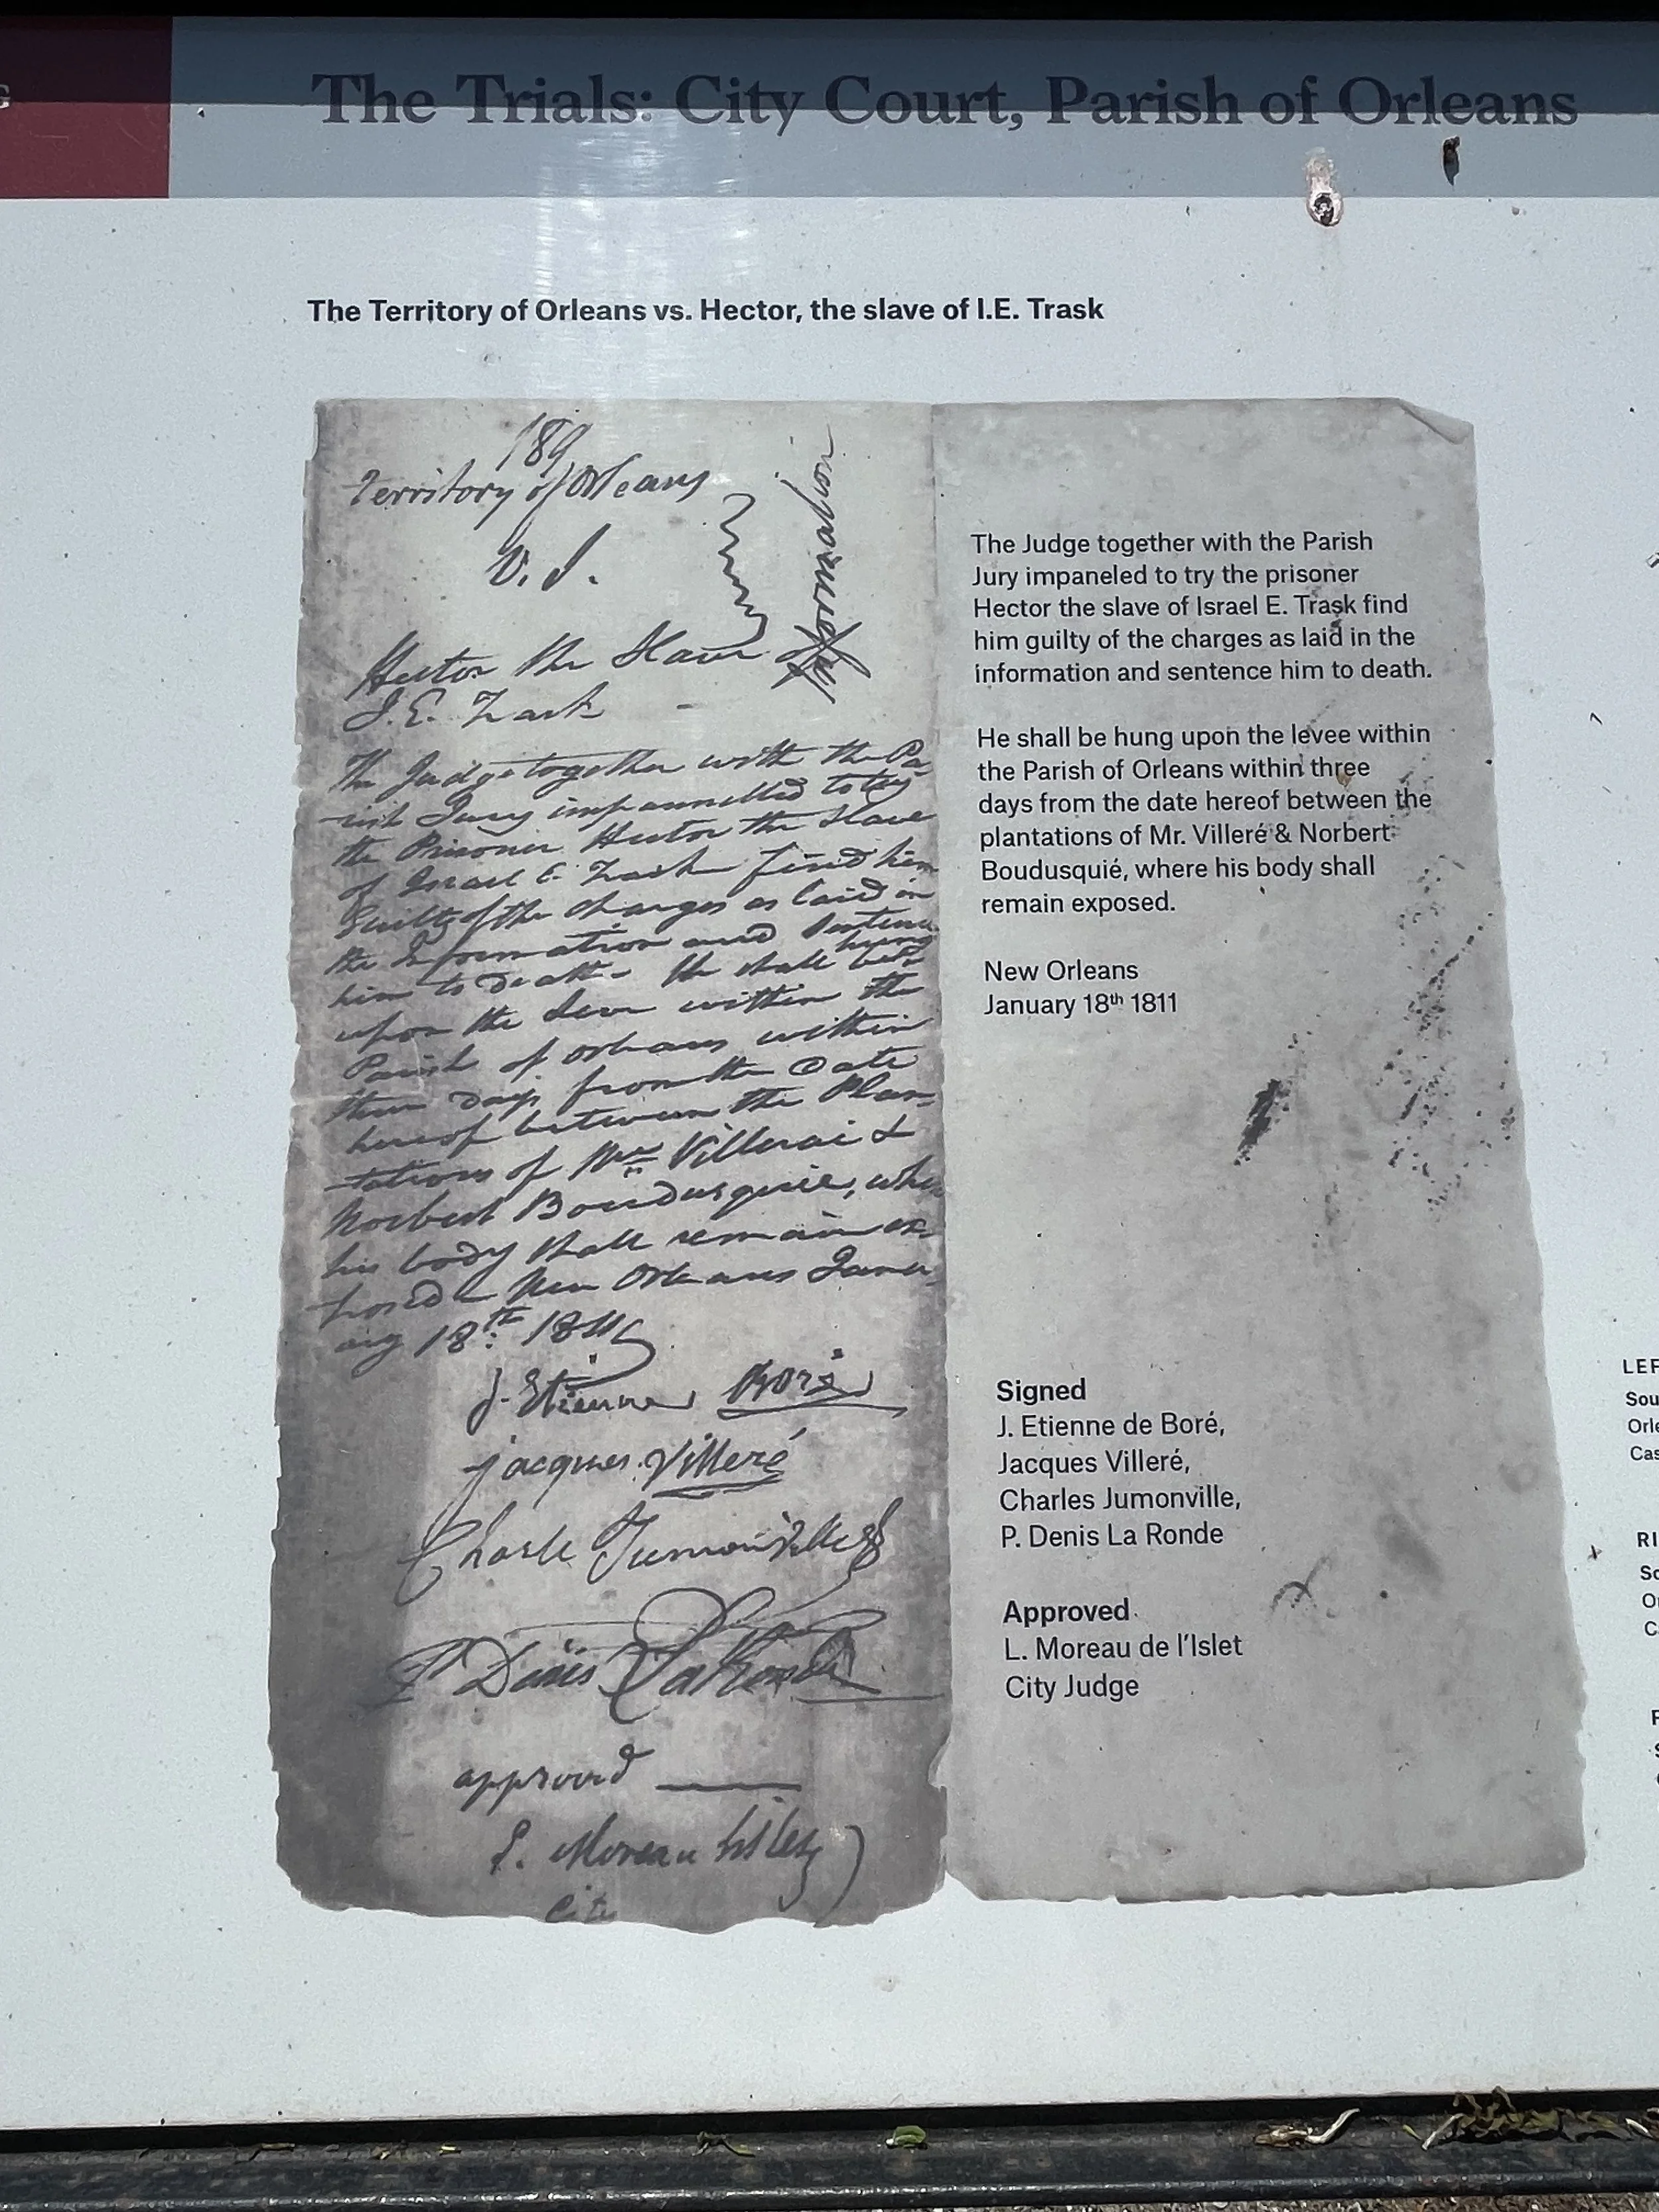 G
The Trials: City Court, Parish of Orleans
The Territory of Orleans vs. Hector, the slave of I.E. Trask
189
Territory of Orleans
V. S.
Information
Hector the Slave of
I. E. Trask
The Judge together with the Pa-
rish Jury impannelled to try
the Prisoner Hector the Slave
of Israel E. Trask find him
Guilty of the charges as laid in
the Information and Sentence
him to Death - He shall be hung
upon the Levee within the
Parish of Orleans within
three Days from the Date
hereof between the Plan-
tations of Mr. Villerai &
Norbert Boudusquié, where
his body shall remain ex-
posed - New Orleans Janu-
ary 18th 1811
J. Etienne Boré
jacques Villeré
Charle Jumonville
P Denis LaRonde
approved
L. Moreau Lislet
City
The Judge together with the Parish
Jury impaneled to try the prisoner
Hector the slave of Israel E. Trask find
him guilty of the charges as laid in the
information and sentence him to death.
He shall be hung upon the levee within
the Parish of Orleans within three
days from the date hereof between the
plantations of Mr. Villeré & Norbert
Boudusquié, where his body shall
remain exposed.
New Orleans
January 18th 1811
Signed
J. Etienne de Boré,
Jacques Villeré,
Charles Jumonville,
P. Denis La Ronde
Approved
L. Moreau de l'Islet
City Judge
LEF
Sou
Orle
Cas
RI
So
Or
C